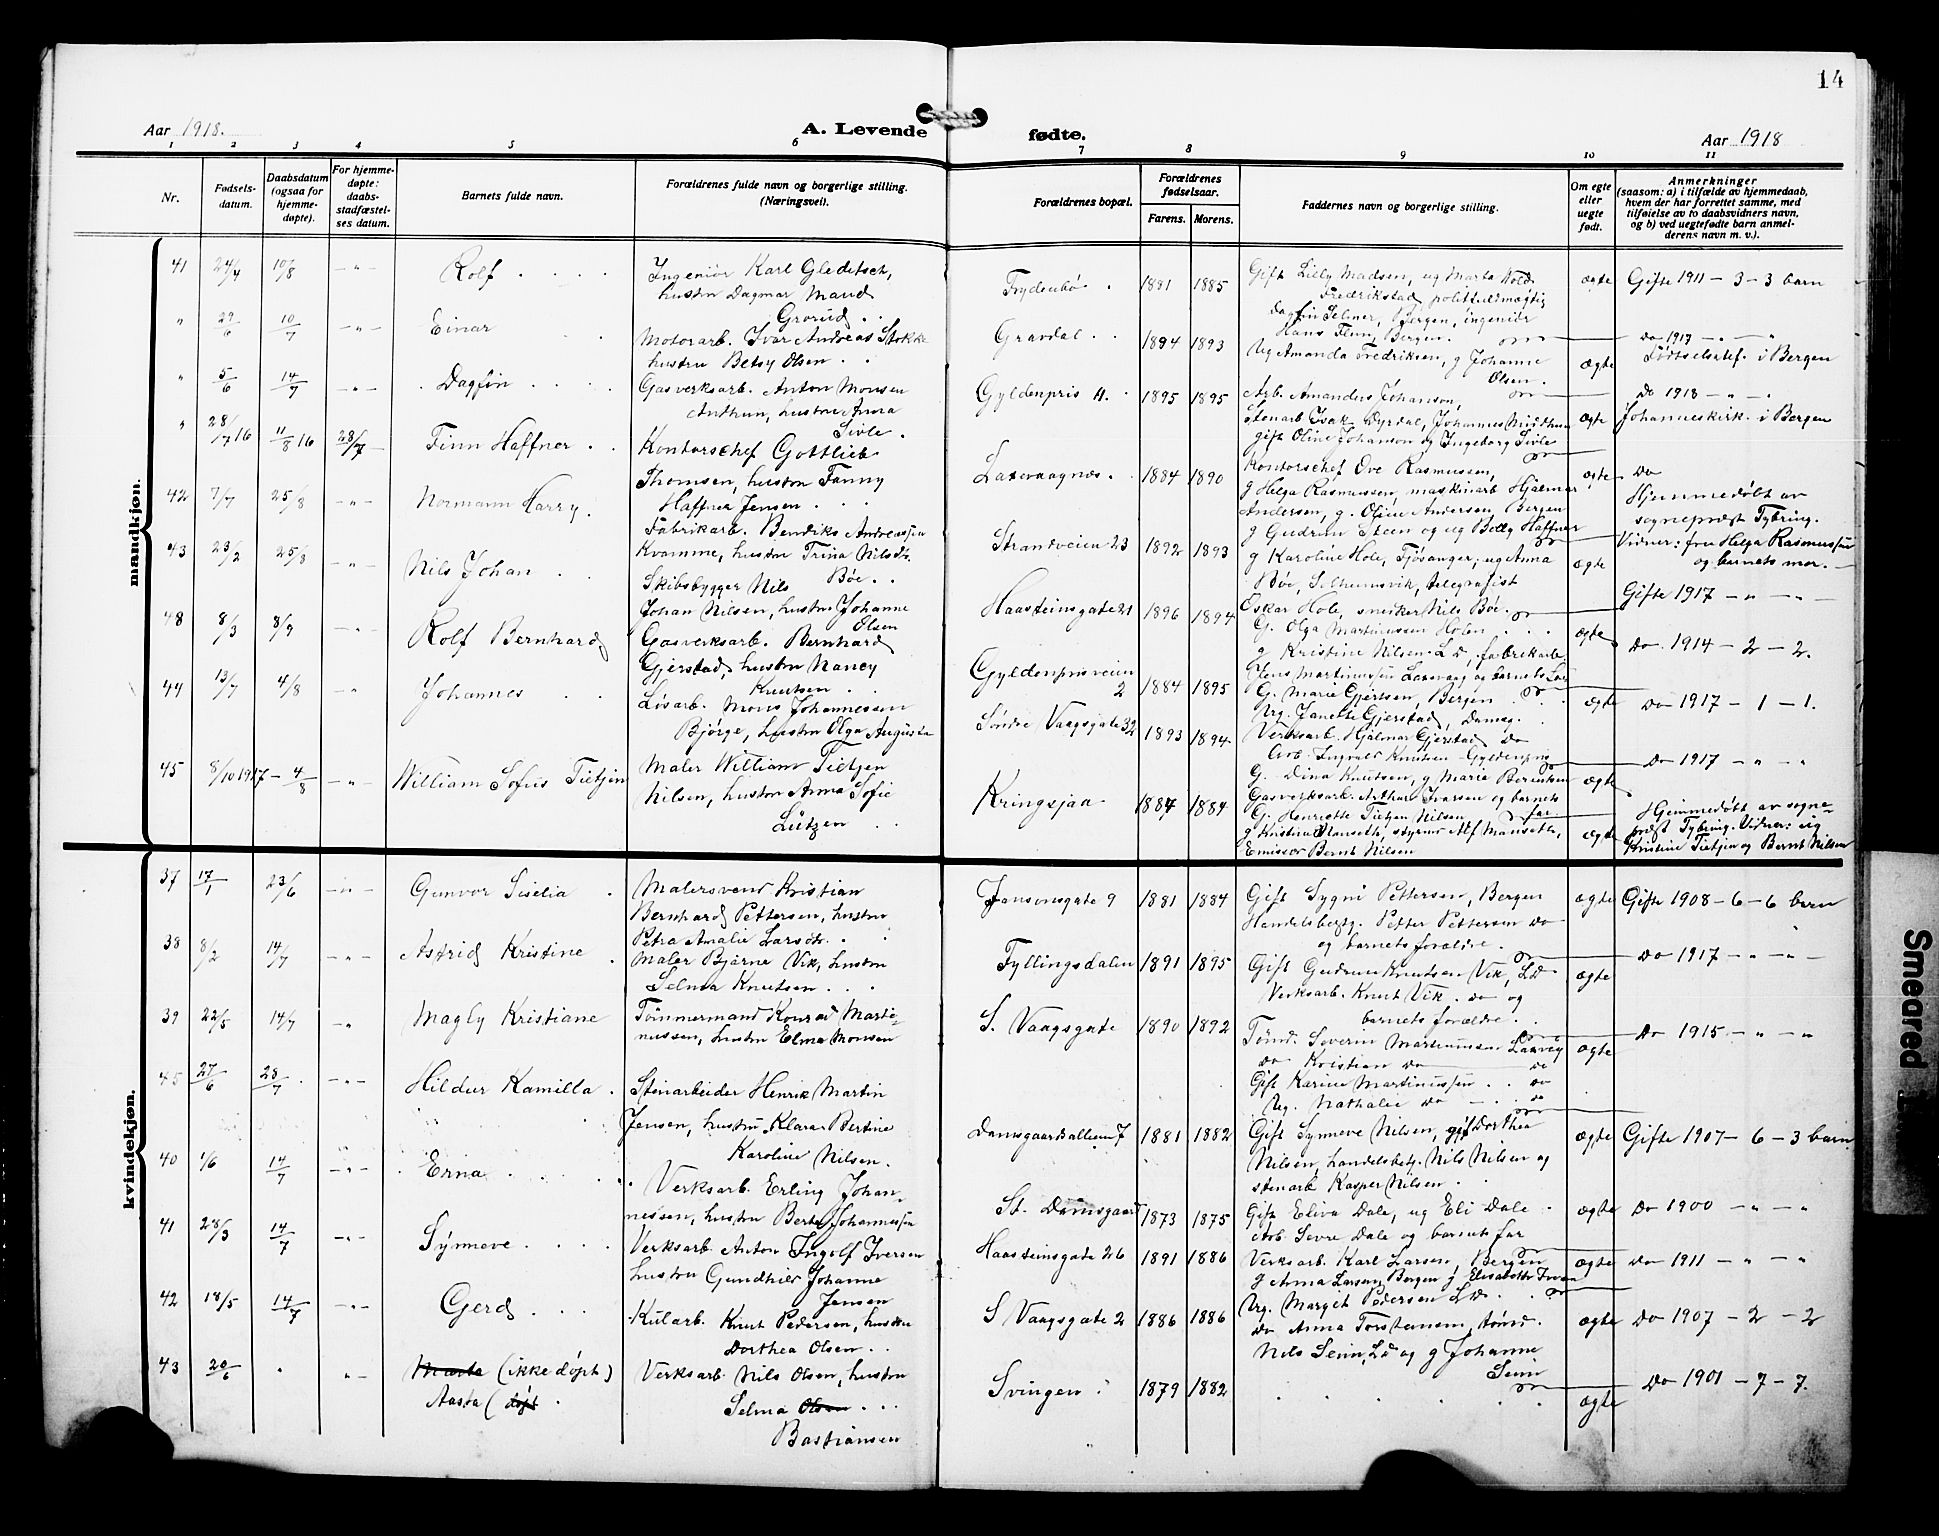 14
Aar 1918.
A. Levende fødte.
Aar 1918
1 2 3 4 5 6 7 8 9 10 11
Nr.
Fødsels-
datum.
Daabsdatum
(ogsaa for
hjemme-
døpte).
For hjemme-
døpte:
daabs-
stadfæstel-
ses datum.
Barnets fulde navn.
Forældrenes fulde navn og borgerlige stilling.
(Næringsvei).
Forældrenes bopæl.
Forældrenes
fødselsaar.
Farens. Morens.
Faddernes navn og borgerlige stilling.
Om egte
eller
uegte
født.
Anmerkninger
(saasom: a) i tilfælde av hjemmedaab,
hvem der har forrettet samme, med
tilføielse av to daabsvidners navn,
og b) ved uegtefødte barn anmel-
derens navn m. v.).
mandkjøn.
41 24/4 10/8 - " - Rolf
Ingeniør Karl Gleditsch,
hustru Dagmar Maud
Grorud
Frydenbø 1881 1885
Gift Lilly Madsen, ug Marta Wold
Fredrikstad politifuldmægtig
Dagfin Selmer, Bergen, ingeniør
Hans Flem, Bergen.
ægte Gifte 1911 - 3 - 3 barn
" 29/6 10/7 - " - Einar
Motorarb. Ivar Andreas Stokke
hustru Betsy Olsen
Gravdal 1894 1893
Ug Amanda Fredriksen, g Johanne
Olsen.
ægte Do 1917 - " - "
Fødselsstif. i Bergen
" 5/6 14/7 - " - Dagfin
Gasverksarb. Anton Monsen
Anthun, hustru Anna
Sivle.
Gyldenpris 4. 1895 1895
Arb. Amandus Johanson,
Stenarb Isak Dyrdal, Johannes
gift Oline Johanson og Ingeborg Sivle
ægte Do 1918 - " - "
Johanneskirk. i Bergen
" 28/7 16 11/8 16 28/7 - Finn Haffner
Kontorschef Gottlieb
Thomsen, hustru Fanny
Haffner Jensen
Laxevaagnes. 1884 1890
Kontorschef Ove Rasmussen,
g Helga Rasmussen, maskinarb Hjalmar
Andersen, g. Oline Andersen Bergen
g Gudrun Steen og ug Betty Haffner
ægte Do
Hjemmedøbt av
sogneprest Tybring.
Vidner: fru Helga Rasmussen
og barnets mor.
42 7/7 25/8 - " - Normann Harry.
Fabrikarb. Bendiks Andreassen
Kvamme, hustru Trina Nilsdtr.
Bøe.
Strandveien 23 1892 1893
g Karoline Hole, Fjøsanger, ug Anna
Bøe, Solheimsvik, telegrafist
Oskar Hole, snekker Nils Bøe.
ægte Gifte 1917 - " - " -
43 23/2 25/8 - " - Nils Johan
Skibsbygger Nils
Johan Nilsen, hustru Johanne
Olsen
Haasteinsgate 21 1896 1894
G. Olga Martinussen Holen
g Kristine Nilsen Ld, fabrikarb
Olens Martinussen Laxevaag og barnets far
ægte Do 1914 - 2 - 2.
48 8/3 8/9 - " - Rolf Bernhard
Gasverksarb. Bernhard
Gjerstad, hustru Nancy
Knutsen
Gyldenprisveien
2 1884 1895
G. Marie Gjertsen, Bergen
Ug. Janette Gjerstad, Damsg.
Verksarb. Hjalmar Gjerstad Do
Arb. Ingvald Knutsen Gyldenpris
ægte Do 1917 - 1 - 1.
44 13/7 4/8 - " Johannes
Løsarb. Mons Johannessen
Bjørge, hustru Olga Augusta
Søndre Vaagsgate 32 1893 1894
G. Dina Knutsen, g Marie Berentsen
Gasverksarb. Arthur Ivarsen og barnets
far.
ægte Do 1917 - " - "
45 8/10 1917 - 4/8 - " - William Sofus Tietjen
Maler William Tietjen
Nilsen, hustru Anna Sofie
Lützen
Kringsjaa 1887 1884
G. Henriette Tietjen Nilsen
g Kristine Manseth, styrmd Alf Manseth,
Emissær Bernt Nilsen
ægte Hjemmedøbt av sogne-
prest Tybring. Vidner: ug
Kristine Tietjen og Bernt Nilsen
kvindekjøn.
37 17/1 23/6 - " - Gunvor Siselia
Malersvend Kristian
Bernhard Pettersen, hustru
Petra Amalie Larsdtr.
Jansonsgate 9 1881 1884
Gift Sygni Pettersen, Bergen
Handelsbetg. Petter Pettersen Do
og barnets forældre.
ægte Gifte 1908 - 6 - 6 barn
38 8/2 14/7 - " - Astrid Kristine
Maler Bjarne Vik, hustru
Selma Knutsen
Fyllingsdalen 1891 1895
Gift Gudrun Knutsen Vik, Ld
Verksarb. Knut Vik. do og
barnets forældre.
ægte Do 1917 - " - " -
39 22/5 14/7 - " Magly Kristiane
Tømmermand Konrad Marti-
nussen, hustru Elma Monsen
S. Vaagsgate 1890 1892
Tømd. Severin Martinussen Laxevg
do Kristian do do
Gift Karine Martinussen do
Ug. Nathalie do do
ægte Do 1915. - " - "
45 27/6 28/7 - " - Hildur Kamilla
Stenarbeider Henrik Martin
Jensen, hustru Klara Bertine
Karoline Nilsen.
Damsgaardallèen 7 1881 1882
Gift Synneve Nilsen, gift Dorthea
Nilsen, handelsbetj. Nils Nilsen og
stenarb Kasper Nilsen
ægte Gifte 1907 - 6 - 3 barn
40 1/6 14/7 - " - Erna
Verksarb. Erling Johan-
nessen, hustru Berta Johannessen
St. Damsgaard 1873 1875
Gift Eliva Dale, ug Eli Dale
Arb. Sevre Dale og barnets far
ægte Do 1900 - " - "
41 28/3 14/7 - " - Synneve
Verksarb. Anton Ingolf Iversen
hustru Gundhild Johanne
Jensen
Haasteinsgate 26 1891 1886
Verksarb. Karl Larsen, Bergen
g Anna Larsen Bergen g Elisabeth
ægte Do 1911 - " - "
42 18/5 14/7 - " - Gerd
Kularb. Knut Pedersen, hustru
Dorthea Olsen
S Vaagsgate 2 1886 1886
Ug. Margit Pedersen Ld.
Do Anna Torstensen, tømd.
Nils Seim, Ld og g Johanne
Seim
ægte Do 1907 - 2 - 2
43 20/6 " " - Marta (ikke døpt)
Aasta (døpt
Verksarb. Nils Olsen, hustru
Selma Olsen
Bastiansen
Svingen 1879 1882
ægte Do 1901 - 7 - 7.
Smeared